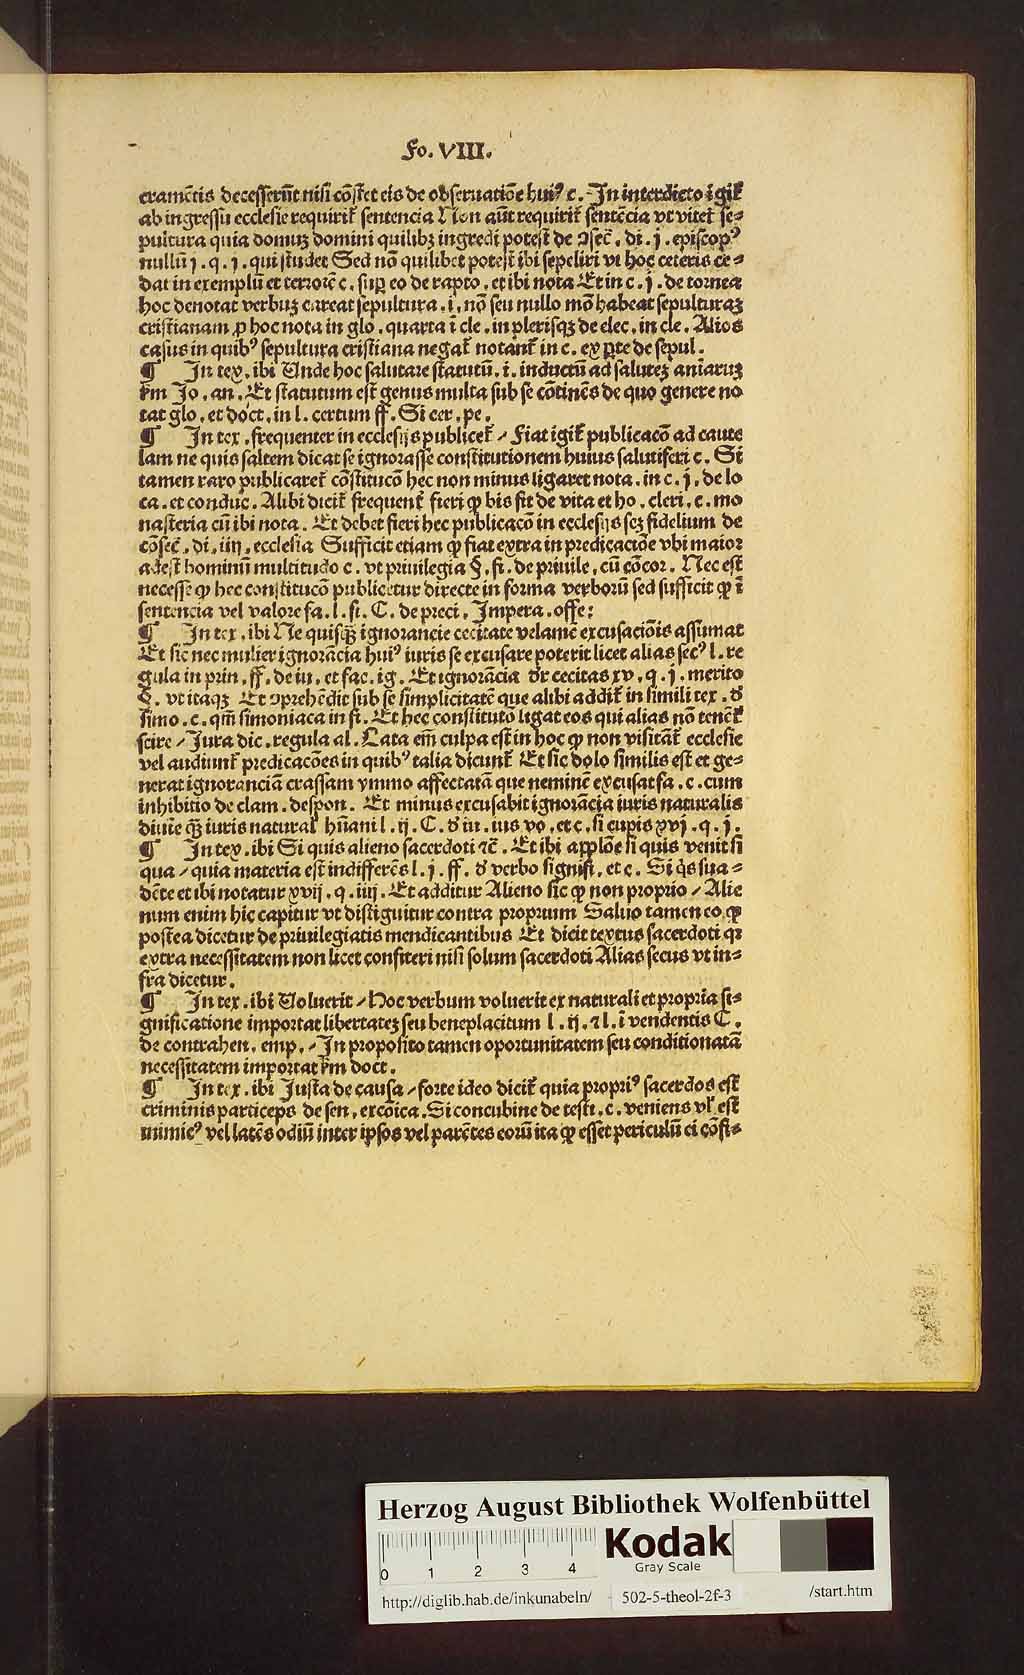 Fo. VIII.
cramētis decesserūt nisi cōstet eis de obseruatiōe huiꝰ c. In interdicto igit᷑
ab ingressu ecclesie requirit᷑ sentencia Non aūt requirit᷑ sentēcia vt vitet᷑ se⸗
pultura quia domuʒ domini quilibʒ ingredi potest de ꝯsec̄. di. j. episcopꝰ
nullū j. q. j. qui studet Sed nō quilibet potest ibi sepeliri vt hoc ceteris ce⸗
dat in exemplū et terrorē c. sup eo de rapto. et ibi nota Et in c. j. de tornea
hoc denotat verbuʒ careat sepultura .i. nō seu nullo mō habeat sepulturaʒ
cristianam ꝓ hoc nota in glo. quarta ī cle. in plerisqʒ de elec. in cle. Alios
casus in quibꝰ sepultura cristiana negat᷑ notant᷑ in c. ex ꝑte de sepul.
¶ In tex. ibi Unde hoc salutare statutū .i. inductū ad saluteʒ aniaruʒ
ẜm Jo. an. Et statutum est genus multa sub se cōtinēs de quo genere no
tat glo. et doct. in l. certum ff. Si cer. pe.
¶ In tex. frequenter in ecclesijs publicet᷑ / Fiat igit᷑ publicacō ad caute
lam ne quis saltem dicat se ignorasse constitutionem huius salutiferi c. Si
tamen raro publicaret᷑ cōstitucō hec non minus ligaret nota. in c. j. de lo
ca. et conduc. Alibi dicit᷑ frequent᷑ fieri ꝙ bis fit de vita et ho. cleri. c. mo
nasteria cū ibi nota. Et debet fieri hec publicacō in ecclesijs scʒ fidelium de
cōsec̄. di. iiij. ecclesia Sufficit etiam ꝙ fiat extra in predicaciōe vbi maior
adest hominū multitudo c. vt priuilegia §. fi. de priuile. cū cōcor. Nec est
necesse ꝙ hec constitucō publicetur directe in forma verborū sed sufficit ꝙ ī
sentencia vel valore fa. l. fi. C. de preci. Impera. offe:
¶ In tex. ibi Ne quisq̄ʒ ignorancie cecitate velamē excusaciōis assumat
Et sic nec mulier ignorācia huiꝰ iuris se excusare poterit licet alias secꝰ l. re
gula in prin. ff. de iu. et fac. ig. Et ignorācia dr̄ cecitas xv. q. j. merito
§. vt itaqʒ Et ꝯprehēdit sub se simplicitatē que alibi addit᷑ in simili tex. ď
simo. c. qm̄ simoniaca in fi. Et hec constitutō ligat eos qui alias nō tenēt᷑
scire / Jura dic. regula al. Lata em̄ culpa est in hoc ꝙ non visitāt᷑ ecclesie
vel audiunt᷑ predicacōes in quibꝰ talia dicunt᷑ Et sic dolo similis est et ge⸗
nerat ignoranciā crassam ymmo affectatā que neminē excusat fa. c. cum
inhibitio de clam. despon. Et minus excusabit ignorācia iuris naturalis
diuīe q̄ʒ iuris natural᷑ hūani l. ij. C. ď iu. ius vo. et c. si cupis xvj. q. j.
¶ In tex. ibi Si quis alieno sacerdoti ⁊c̄. Et ibi applōe si quis venit si
qua / quia materia est indifferēs l. j. ff. ď verbo signifi. et c. Si q̇s sua⸗
dēte et ibi notatur xvij. q. iiij. Et additur Alieno sic ꝙ non proprio / Alie
num enim hic capitur vt distiguitur contra proprium Saluo tamen eo ꝙ
postea dicetur de priuilegiatis mendicantibus Et dicit textus sacerdoti qꝛ
extra necessitatem non licet confiteri nisi solum sacerdoti Alias secus vt in⸗
fra dicetur.
¶ In tex. ibi Voluerit / Hoc verbum voluerit ex naturali et propria si⸗
gnificatione importat libertateʒ seu beneplacitum l. ij. ⁊ l. ī vendentis C.
de contrahen. emp. / In proposito tamen oportunitatem seu conditionatā
necessitatem importat ẜm doct.
¶ In tex. ibi Justa de causa / forte ideo dicit᷑ quia propriꝰ sacerdos est
criminis particeps de sen. excōica. Si concubine de testi. c. veniens vl᷑ est
inimicꝰ vel latēs odiū inter ipsos vel parētes eorū ita ꝙ esset periculū ei cōfi⸗
Herzog August Bibliothek Wolfenbüttel
0 1 2 3 4
Kodak
Gray Scale
http://diglib.hab.de/inkunabeln/ 502-5-theol-2f-3 /start.htm